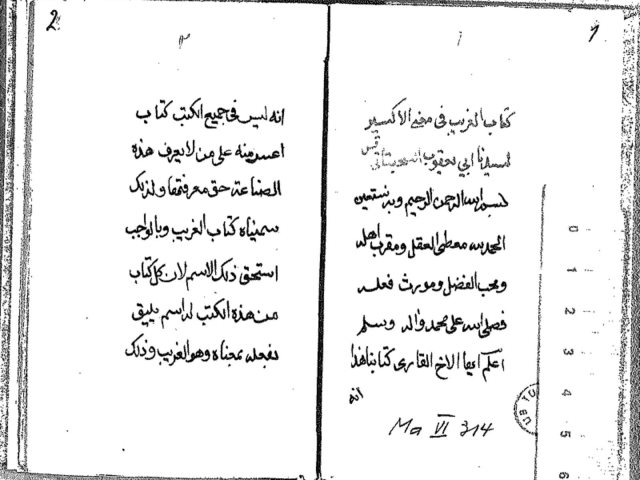 1
١
كتاب الغريب فى معنى الاكسير
لسيدنا ابي يعقوب السجستانى قس
بسم الله الرحمن الرحيم وبه نستعين
الحمد لله معطى العقل ومقرب اهله
ومحب الفضل ومورث فعله
فصلى الله على محمد واله وسلم
اعلم ايها الاخ القارى كتابنا هذا
انه
Ma VI 314
2
٢
انه ليس فى جميع الكتب كتاب
اعسر منه على من لا يعرف هذه
الصناعة حق معرفتها ولذلك
سميناه كتاب الغريب وبالواجب
استحق ذلك الاسم لان كل كتاب
من هذه الكتب له اسم يليق
بمعناه وهو الغريب وذلك
0
1
2
3
4
5
6